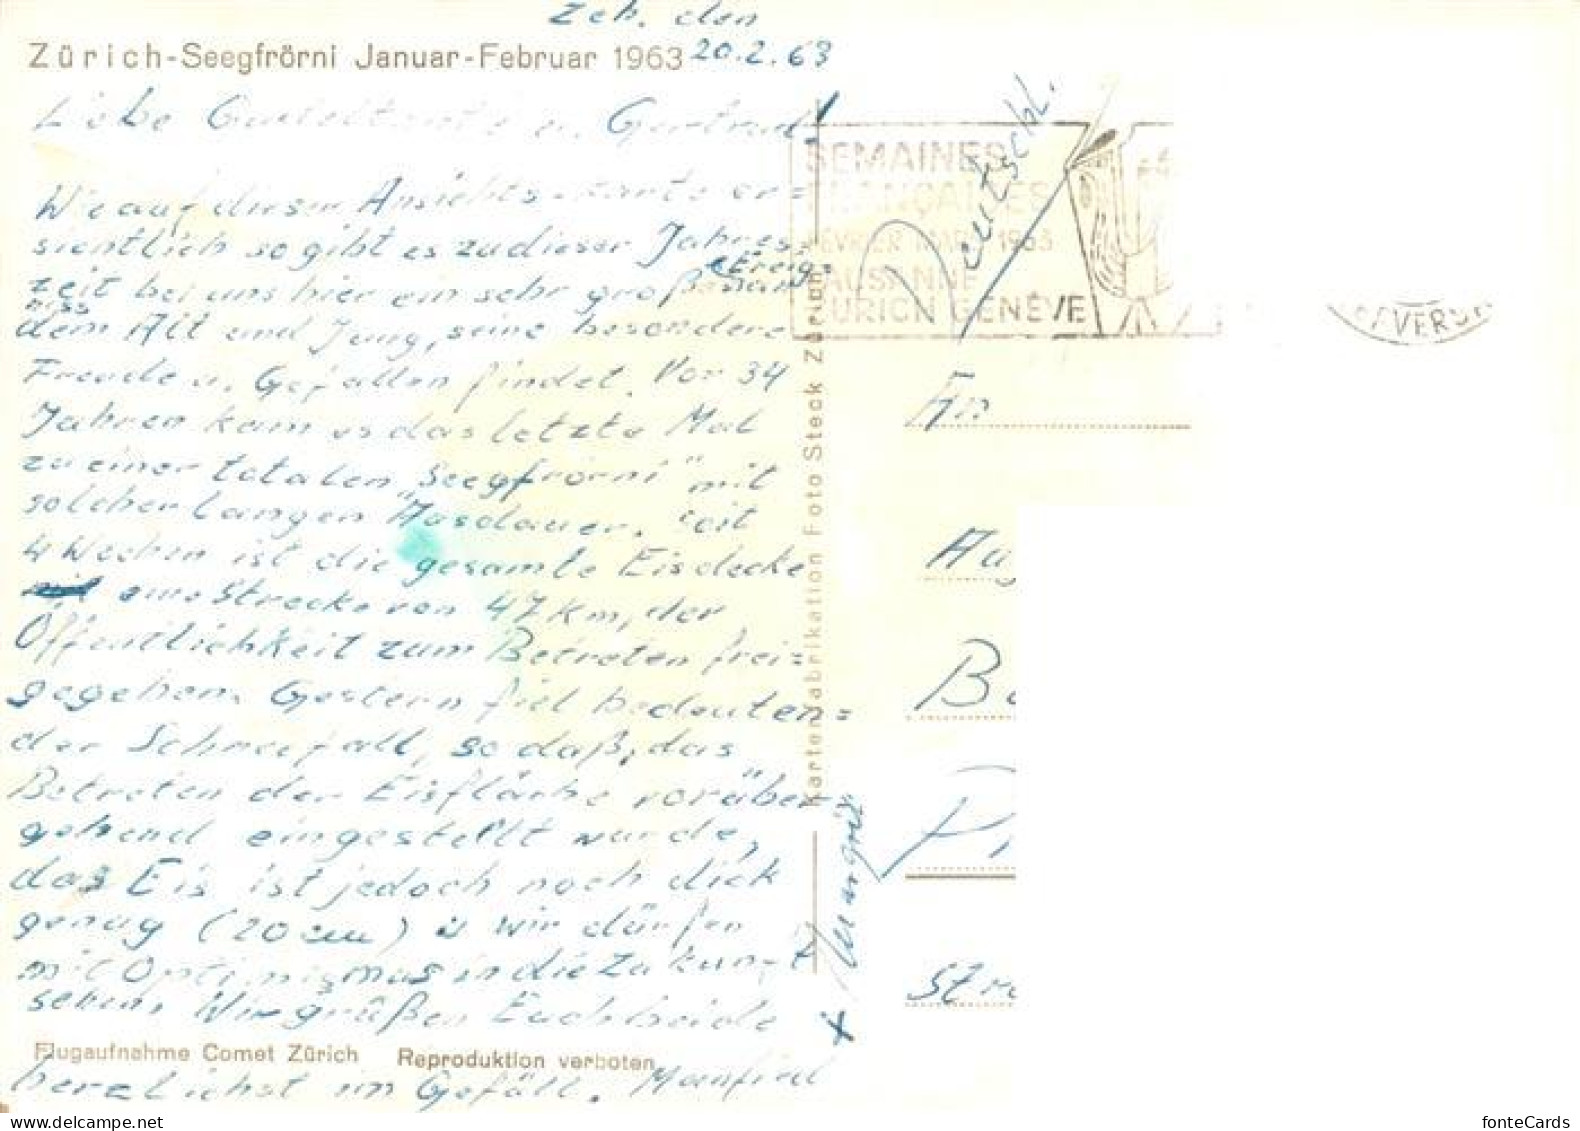 Zch. den
Zürich-Seegfrörni Januar-Februar 1963 20.2.63
Liebe u. Gertrud
Wie auf dieser Ansichtskarte er=
sientlich so gibt es zu dieser Jahres=
zeit bei uns hier ein sehr großes Ereig=
niss an
dem Alt und Jung, seine besondere
Freude u. Gefallen findet. Vor 34
Jahren kam es das letzte Mal
zu einer totalen "Seegfrörni" mit
solcher langen Ausdauer. Seit
4 Wochen ist die gesamte Eisdecke
eine Strecke von 47 km, der
Öffentlichkeit zum Betreten frei=
gegeben. Gestern fiel bedeuten=
der Schneefall, so daß, das
Betreten der Eisfläche vorüber=
gehend eingestellt wurde,
das Eis ist jedoch noch dick
genug (20 cm) u wir dürfen
mit Optimismus in die Zukunft
sehen. Wir grüßen Euch beide
Flugaufnahme Comet Zürich Reproduktion verboten
herzlichst im Gefäll. Manfred
x Margrit
Kartenfabrikation Foto Steck Zürich
SEMAINES
FRANÇAISES
FÉVRIER MARS 1963
LAUSANNE
ZURICH GENÈVE
Deutschl.
An
Au
B
P
Str
fonteCards
delcampe.net